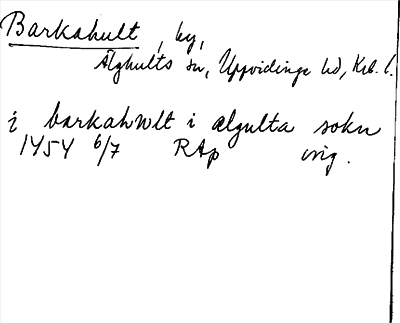 Barkahult, by,
Älghults sn, Uppvidinge hd, Krb. l.
i barkahwlt i ælgulta sokn
1454 6/7 RAp orig.